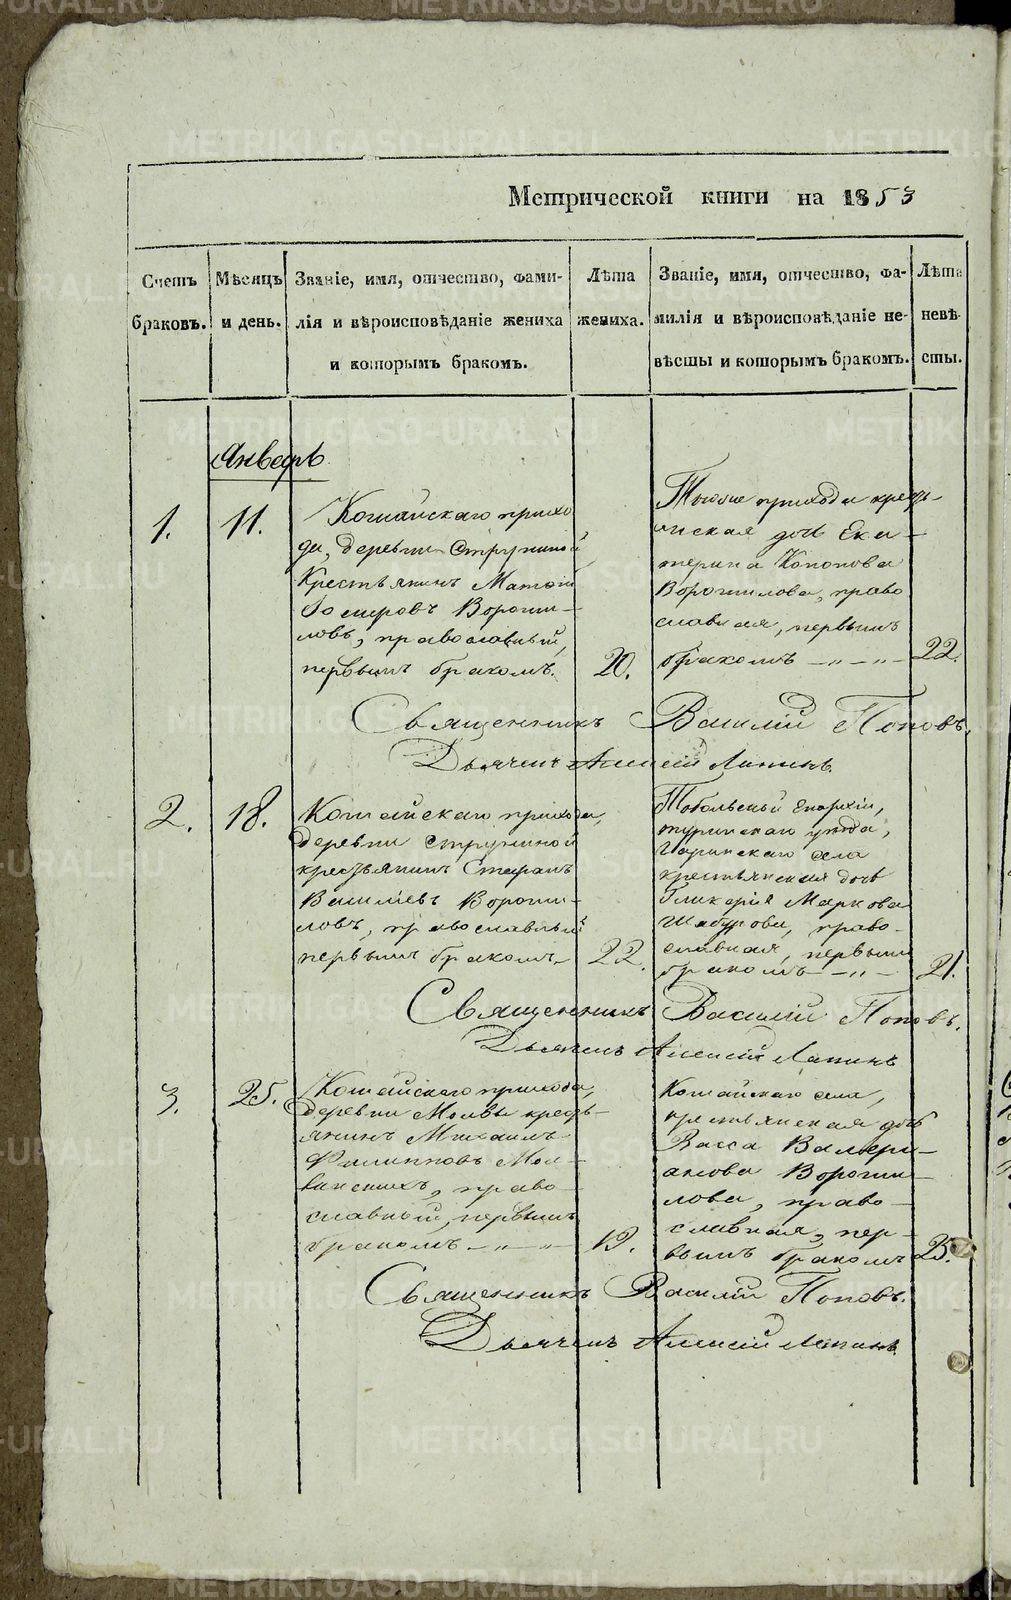 Метрической книги на 1853
Счетъ браковъ.
Мѣсяцъ и день.
Званіе, имя, отчество, фами-
лія и вѣроисповѣданіе жениха
и которымъ бракомъ.
Лѣта жениха.
Званіе, имя, отчество, фа-
милія и вѣроисповѣданіе не-
вѣсты и которымъ бракомъ.
Лѣта невѣ-
сты.
Январь
1.
11.
Кошайскаго прихо
да, деревни Струниной
Крестьянинъ
Вороши-
ловъ, православный,
первымъ бракомъ.
20.
Тогоже прихода кресть-
янская дочь Ека-
терина Кононова
Ворошилова, право
славная, первымъ
бракомъ — „ — „ —
22.
Священникъ Василій Поповъ.
Дьячекъ Алексій Лапинъ.
2.
18.
Кошайскаго прихода,
деревни Струниной
крестьянинъ Стефанъ
Василіевъ Вороши-
ловъ, православный
первымъ бракомъ.
22.
Тобольской Епархіи,
туринскаго уѣзда,
Гаринскаго села
крестьянская дочь
Гликерія Маркова
Шабурова, право-
славная, первымъ
бракомъ — „ —
21.
Священникъ Василій Поповъ.
Дьячекъ Алексій Лапинъ
3.
25.
Кошайскаго прихода,
деревни Молвы кресть-
янинъ Михаилъ
Филипповъ Мол-
винскихъ, право-
славный, первымъ
бракомъ — „ — „ —
19.
Кошайскаго села,
крестьянская дочь
Васса Валери-
анова Вороши-
лова, право-
славная, пер-
вымъ бракомъ
23.
Священникъ Василій Поповъ.
Дьячекъ Алексій Лапинъ.
METRIKI.GASO-URAL.RU